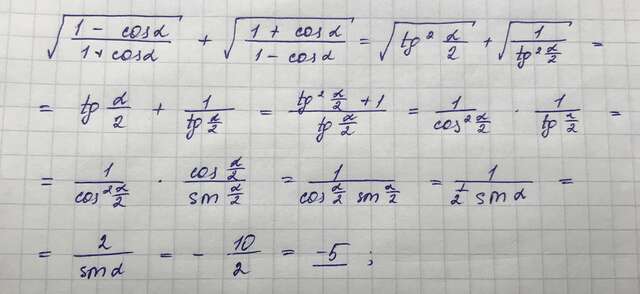 √((1 - cosα)/(1 + cosα)) + √((1 + cosα)/(1 - cosα)) = √(tg² α/2) + √(1/(tg² α/2)) =
= tg α/2 + 1/(tg α/2) = (tg² α/2 + 1)/(tg α/2) = 1/(cos² α/2) · 1/(tg α/2) =
= 1/(cos² α/2) · (cos α/2)/(sin α/2) = 1/(cos α/2 sin α/2) = 1/(1/2 sin α) =
= 2/(sin α) = - 10/2 = -5 ;